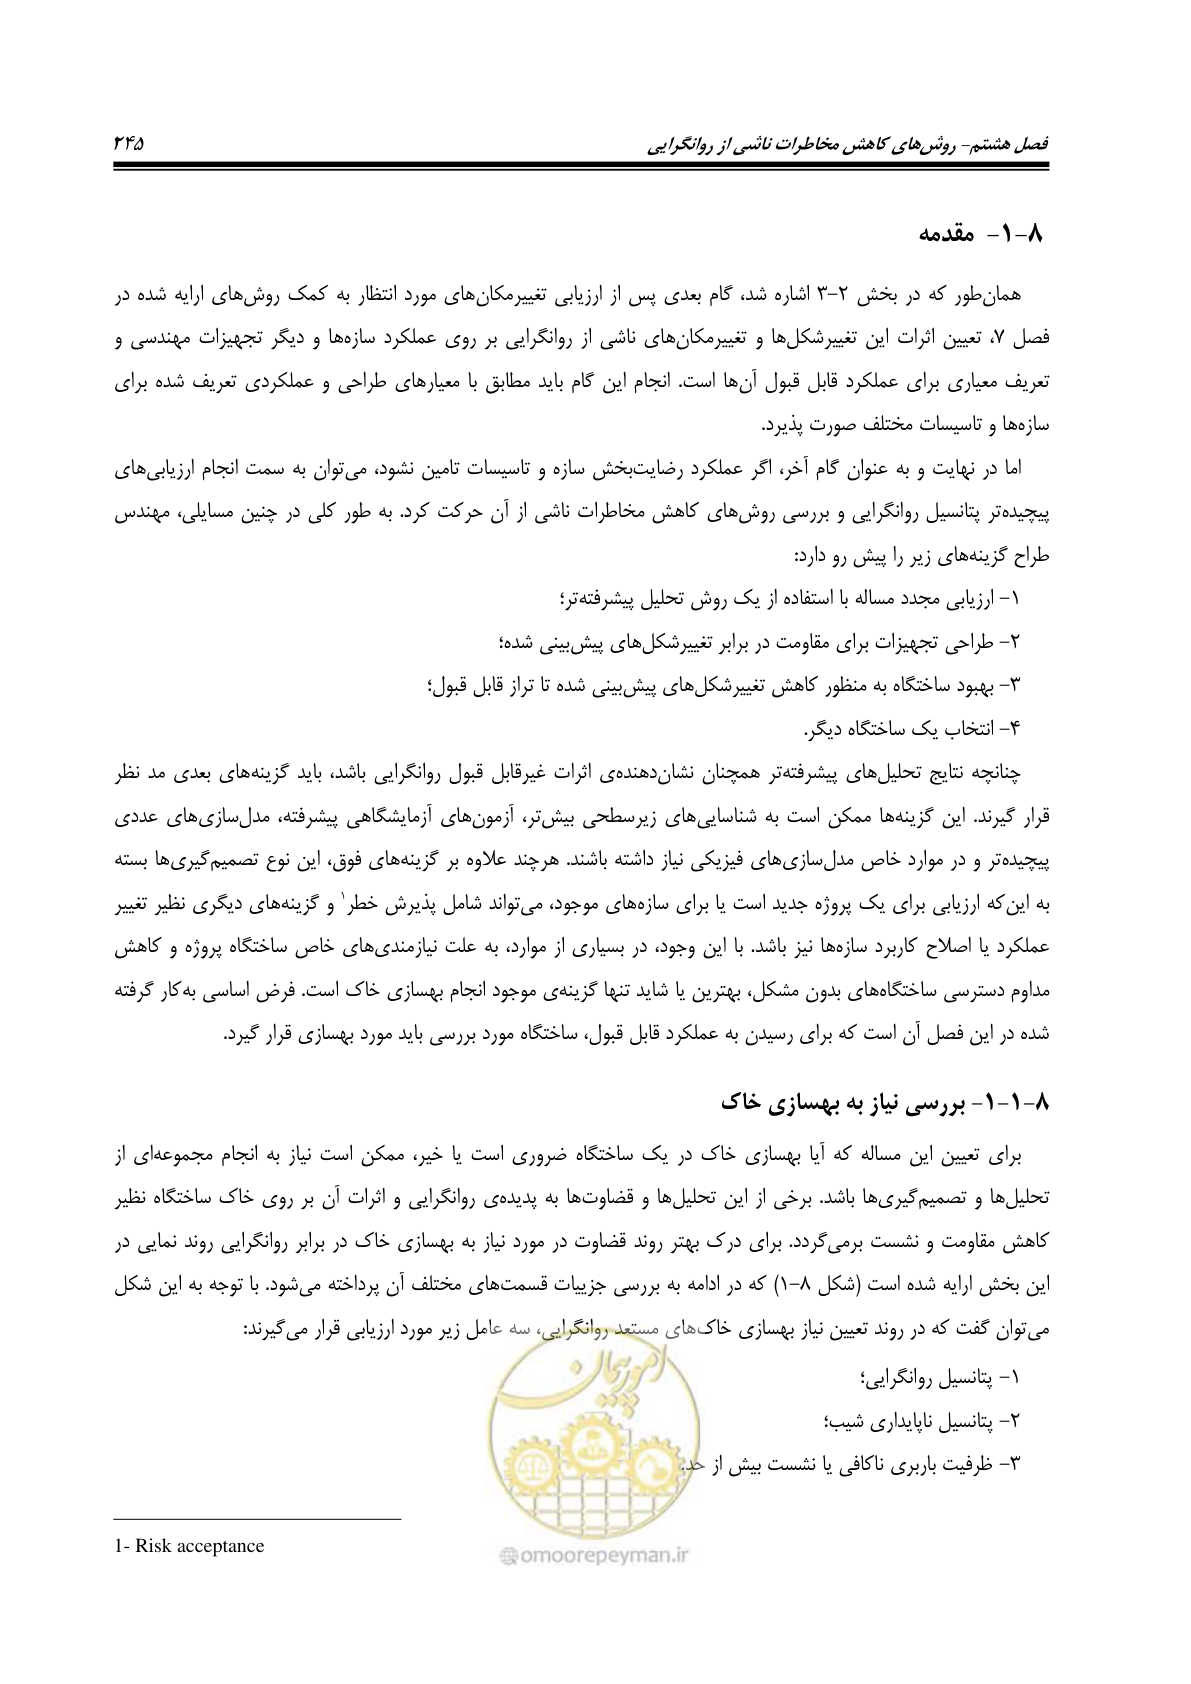 فصل هشتم- روش‌های کاهش مخاطرات ناشی از روانگرایی ۲۴۵
۸-۱- مقدمه
همان‌طور که در بخش ۲-۳ اشاره شد، گام بعدی پس از ارزیابی تغییرمکان‌های مورد انتظار به کمک روش‌های ارایه شده در
فصل ۷، تعیین اثرات این تغییرشکل‌ها و تغییرمکان‌های ناشی از روانگرایی بر روی عملکرد سازه‌ها و دیگر تجهیزات مهندسی و
تعریف معیاری برای عملکرد قابل قبول آن‌ها است. انجام این گام باید مطابق با معیارهای طراحی و عملکردی تعریف شده برای
سازه‌ها و تاسیسات مختلف صورت پذیرد.
اما در نهایت و به عنوان گام آخر، اگر عملکرد رضایت‌بخش سازه و تاسیسات تامین نشود، می‌توان به سمت انجام ارزیابی‌های
پیچیده‌تر پتانسیل روانگرایی و بررسی روش‌های کاهش مخاطرات ناشی از آن حرکت کرد. به طور کلی در چنین مسایلی، مهندس
طراح گزینه‌های زیر را پیش رو دارد:
۱- ارزیابی مجدد مساله با استفاده از یک روش تحلیل پیشرفته‌تر؛
۲- طراحی تجهیزات برای مقاومت در برابر تغییرشکل‌های پیش‌بینی شده؛
۳- بهبود ساختگاه به منظور کاهش تغییرشکل‌های پیش‌بینی شده تا تراز قابل قبول؛
۴- انتخاب یک ساختگاه دیگر.
چنانچه نتایج تحلیل‌های پیشرفته‌تر همچنان نشان‌دهنده‌ی اثرات غیرقابل قبول روانگرایی باشد، باید گزینه‌های بعدی مد نظر
قرار گیرند. این گزینه‌ها ممکن است به شناسایی‌های زیرسطحی بیش‌تر، آزمون‌های آزمایشگاهی پیشرفته، مدل‌سازی‌های عددی
پیچیده‌تر و در موارد خاص مدل‌سازی‌های فیزیکی نیاز داشته باشند. هرچند علاوه بر گزینه‌های فوق، این نوع تصمیم‌گیری‌ها بسته
به این‌که ارزیابی برای یک پروژه جدید است یا برای سازه‌های موجود، می‌تواند شامل پذیرش خطر۱ و گزینه‌های دیگری نظیر تغییر
عملکرد یا اصلاح کاربرد سازه‌ها نیز باشد. با این وجود، در بسیاری از موارد، به علت نیازمندی‌های خاص ساختگاه پروژه و کاهش
مداوم دسترسی ساختگاه‌های بدون مشکل، بهترین یا شاید تنها گزینه‌ی موجود انجام بهسازی خاک است. فرض اساسی به‌کار گرفته
شده در این فصل آن است که برای رسیدن به عملکرد قابل قبول، ساختگاه مورد بررسی باید مورد بهسازی قرار گیرد.
۸-۱-۱- بررسی نیاز به بهسازی خاک
برای تعیین این مساله که آیا بهسازی خاک در یک ساختگاه ضروری است یا خیر، ممکن است نیاز به انجام مجموعه‌ای از
تحلیل‌ها و تصمیم‌گیری‌ها باشد. برخی از این تحلیل‌ها و قضاوت‌ها به پدیده‌ی روانگرایی و اثرات آن بر روی خاک ساختگاه نظیر
کاهش مقاومت و نشست برمی‌گردد. برای درک بهتر روند قضاوت در مورد نیاز به بهسازی خاک در برابر روانگرایی روند نمایی در
این بخش ارایه شده است (شکل ۸-۱) که در ادامه به بررسی جزییات قسمت‌های مختلف آن پرداخته می‌شود. با توجه به این شکل
می‌توان گفت که در روند تعیین نیاز بهسازی خاک‌های مستعد روانگرایی، سه عامل زیر مورد ارزیابی قرار می‌گیرند:
۱- پتانسیل روانگرایی؛
۲- پتانسیل ناپایداری شیب؛
۳- ظرفیت باربری ناکافی یا نشست بیش از حد.
1- Risk acceptance
امور پیمان
@omoorepeyman.ir